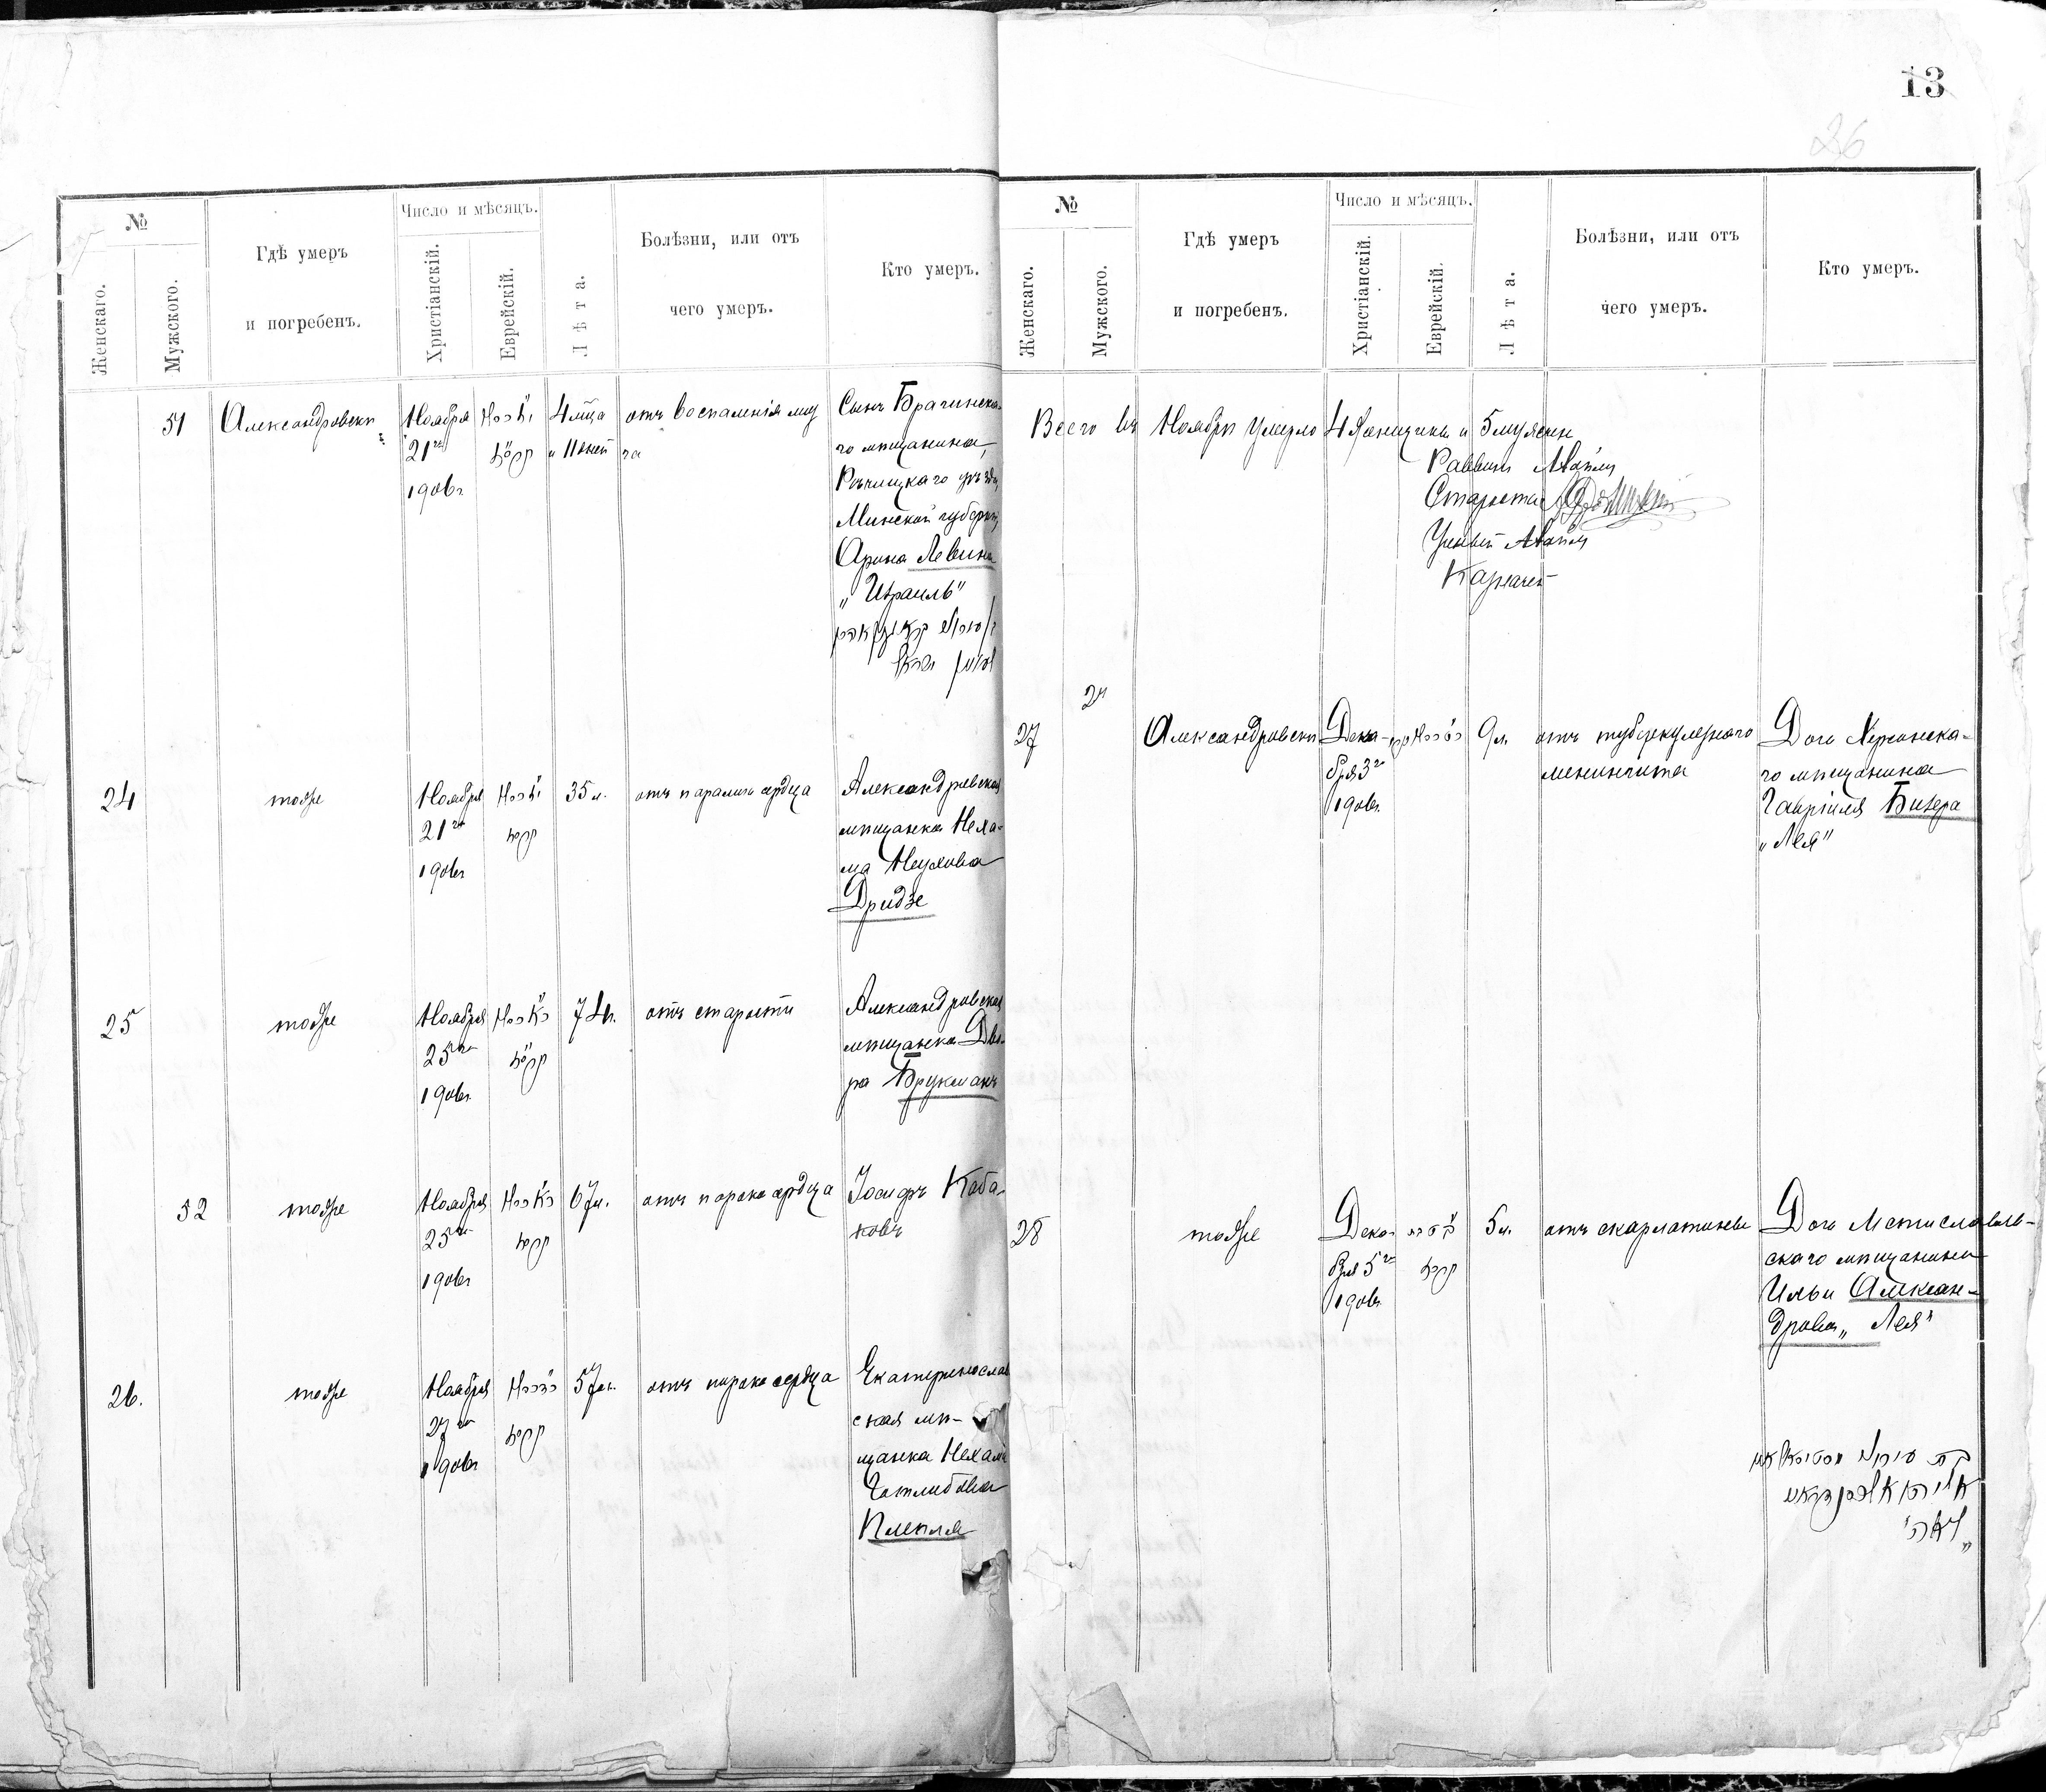 13
26
№
Женскаго.
Мужского.
Гдѣ умеръ
и погребенъ.
Число и мѣсяцъ.
Христіанскій.
Еврейскій.
Лѣта.
Болѣзни, или отъ
чего умеръ.
Кто умеръ.
51
Александровскъ
Ноября
21го
1906г
4 мца
и 11 дней
отъ воспаленія моз
га
Сынъ Брагинска-
го мѣщанина,
Рѣчицкаго уѣзда,
Минской губерніи,
Арона Левина
„Израиль"
24
тоже
Ноября
21го
1906г
35 л.
отъ паралича сердца
Александровская
мѣщанка Неха-
ма
Дридзе
25
тоже
Ноября
25го
1906г.
74л.
отъ старости
Александровская
мѣщанка Дво-
ра Брукманъ
52
тоже
Ноября
25го
1906г
67л.
отъ порока сердца
Іосифъ Каба-
ковъ
26.
тоже
Ноября
27го
1906г
57л.
отъ порока сердца
Екатеринослав
ская мѣ-
щанка Нехама
Готлибовна
№
Женскаго.
Мужского.
Гдѣ умеръ
и погребенъ.
Число и мѣсяцъ.
Христіанскій.
Еврейскій.
Лѣта.
Болѣзни, или отъ
чего умеръ.
Кто умеръ.
Всего въ Ноябрѣ умерло 4 женщины и 5 мужчин
Раввинъ
Староста
Ученый
Казначей
27
Александровскъ
Дека-
бря 3го
1906г.
9л.
отъ туберкулезнаго
менингита
Дочь Херсонска-
го мѣщанина
Гавріиля
„Лея"
28
тоже
Дека-
бря 5го
1906г.
5л.
отъ скарлатины
Дочь Мстиславль-
скаго мѣщанина
Ильи Алексан-
дрова „Лея"